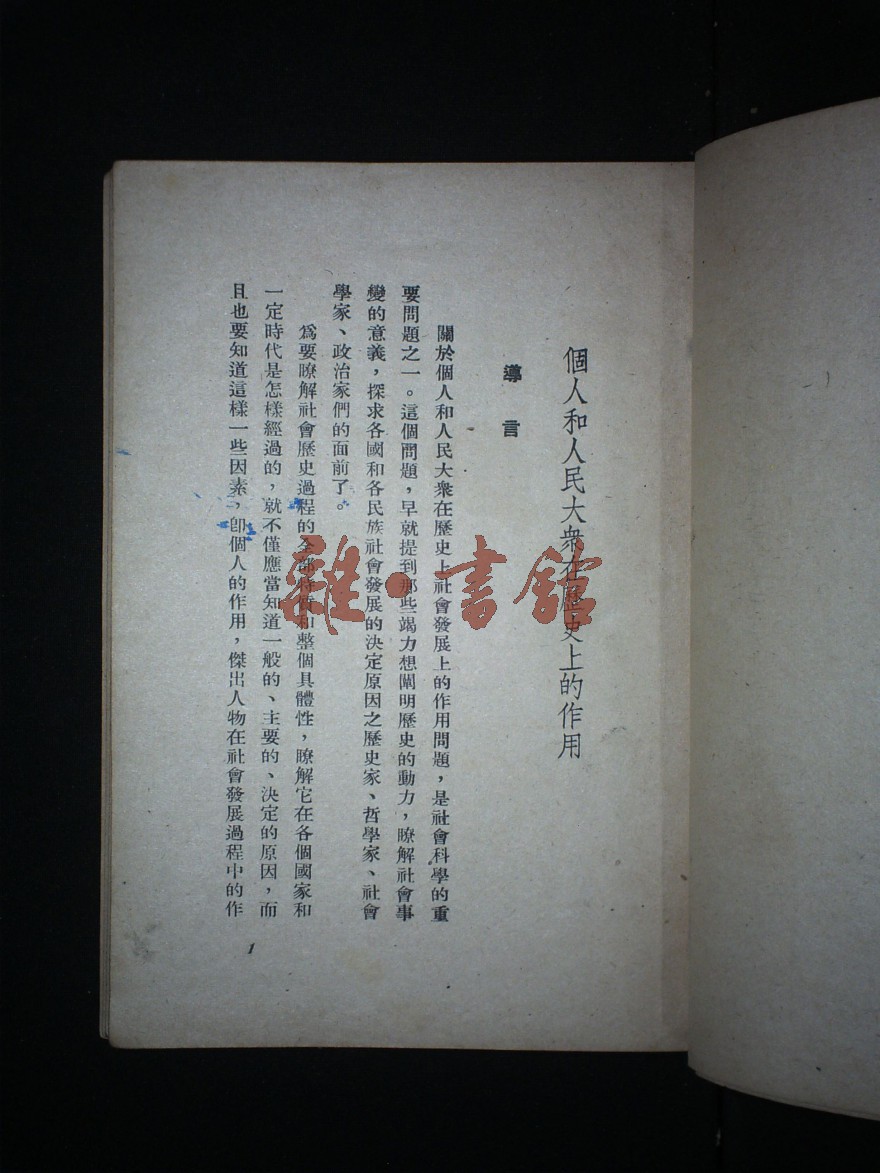 個人和人民大衆在歷史上的作用
導言
關於個人和人民大衆在歷史上社會發展上的作用問題，是社會科學的重
要問題之一。這個問題，早就提到那些竭力想闡明歷史的動力，瞭解社會事
變的意義，探求各國和各民族社會發展的決定原因之歷史家、哲學家、社會
學家、政治家們的面前了。
爲要瞭解社會歷史過程的全部特質和整個具體性，瞭解它在各個國家和
一定時代是怎樣經過的，就不僅應當知道一般的、主要的、決定的原因，而
且也要知道這樣一些因素，卽個人的作用，傑出人物在社會發展過程中的作
1
雜·書館